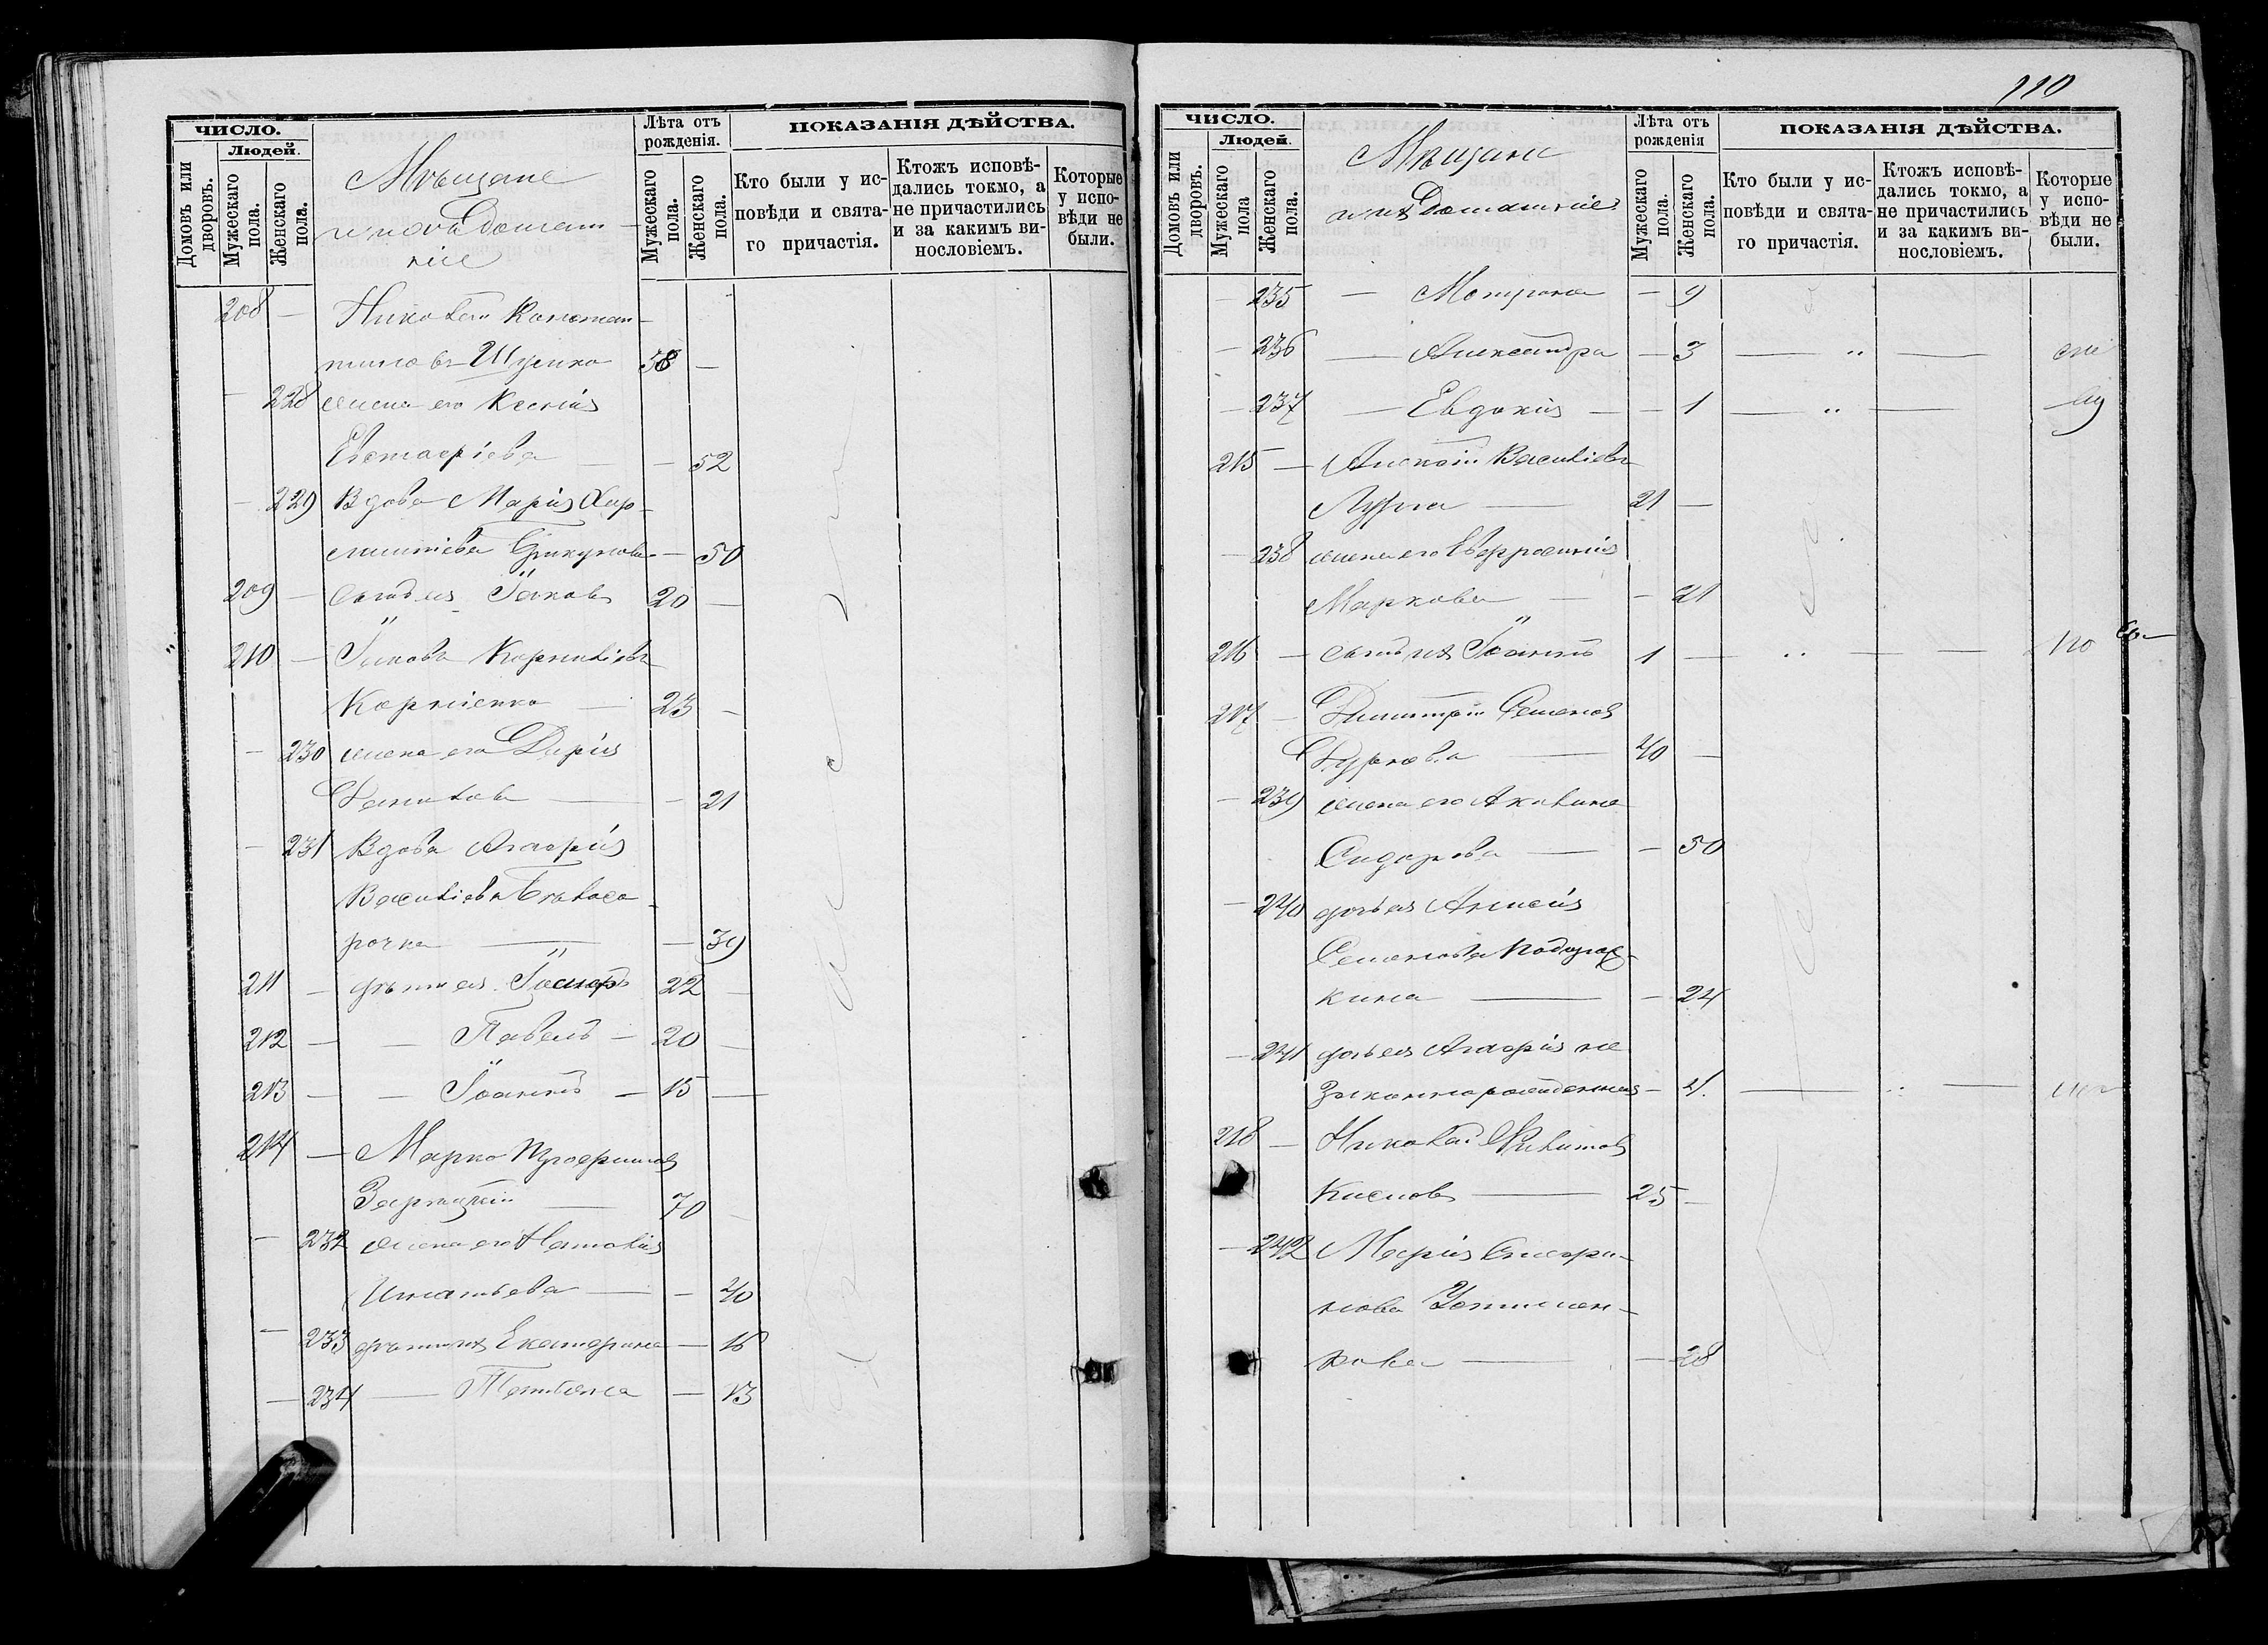 ЧИСЛО.
Домовъ или дворовъ.
Людей.
Мужескаго пола.
Женскаго пола.
Мѣщане
и домаш-
ніе
Лѣта отъ рожденія.
Мужескаго пола.
Женскаго пола.
ПОКАЗАНІЯ ДѢЙСТВА.
Кто были у ис-
повѣди и свята-
го причастія.
Ктожъ исповѣ-
дались токмо, а
не причастились
и за какимъ ви-
нословіемъ.
Которые
у испо-
вѣди не
были.
208 — Николай Констан-
тиновъ Шулика 38 —
— 228 жена его Ксенія
Евстафіева — — 52
— 229 Вдова Марія Хар-
лампіева — 50
209 — сынъ ея Іаковъ 20 —
210 — Іаковъ Корниліевъ
Корніенко — 23 —
— 230 жена его Дарія
Данилова — — 21
— 231 Вдова Агафія
Василіева Бѣласа-
рочка — — 39
211 — дѣти ея Іосифъ 22 —
212 — — Павелъ — 20 —
213 — — Іоаннъ — 15 —
214 — Марко Трофимовъ
Зарицкій — 70 —
— 232 жена его Наталія
Игнатьева — — 40
— 233 дѣти ихъ Екатерина — 16
— 234 — Татіана — 13
110
ЧИСЛО.
Домовъ или дворовъ.
Людей.
Мужескаго пола
Женскаго пола.
Мѣщане
и ихъ домашніе
Лѣта отъ рожденія
Мужескаго пола.
Женскаго пола.
ПОКАЗАНІЯ ДѢЙСТВА.
Кто были у ис-
повѣди и свята-
го причастія.
Ктожъ исповѣ-
дались токмо, а
не причастились
и за какимъ ви-
нословіемъ.
Которые
у испо-
вѣди не
были.
— 235 — Мотрона — 9
— 236 — Александра — 3 — „ —
— 237 — Евдокія — — 1 — „ —
215 — Василіевъ
Лузга — 21 —
— 238 жена его Евфросинія
Маркова — — 21
216 — сынъ ихъ Іоаннъ 1 — „ — — по
217 — Димитрій Семеновъ
— 40 —
— 239 жена его Акилина
Сидорова — — 50
— 240 дочь ея Анисія
Семенова
кина — — 24
— 241 дочь ея Агафія не
законнорожденная — 4. — „ —
218 — Николай Филиповъ
Кисловъ — 25 —
— 242 Марія
нова Устимен-
кова — — 28